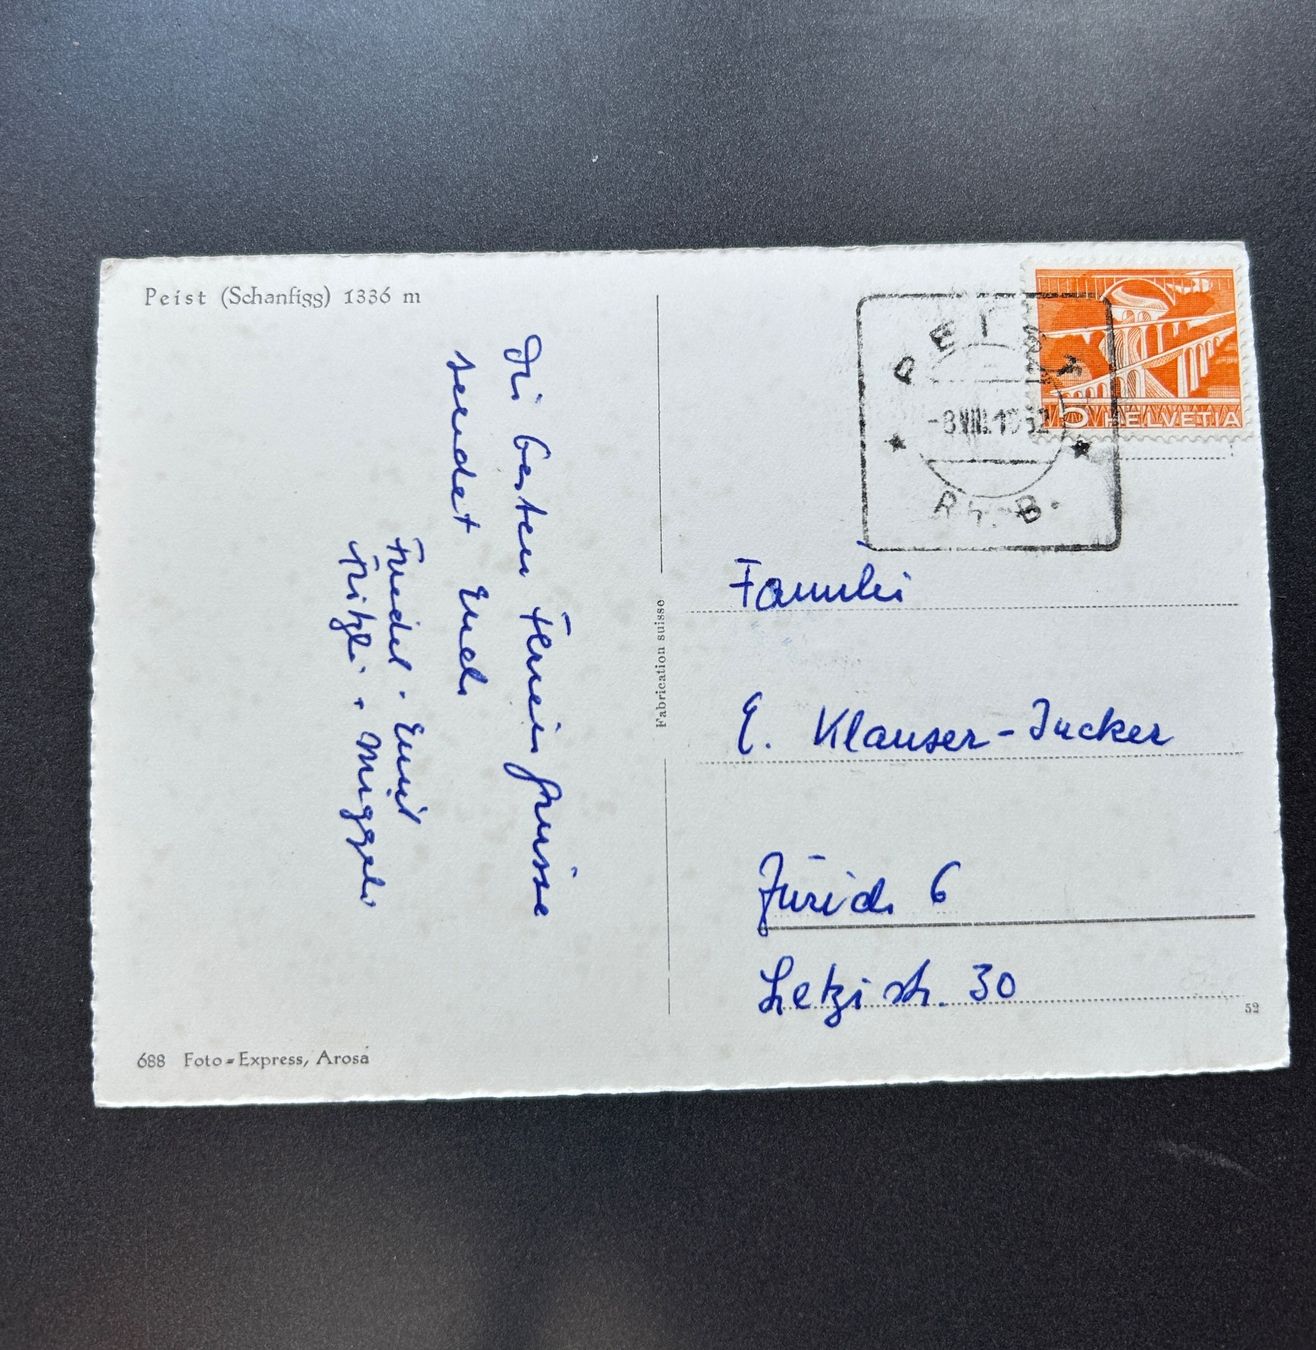 Peist (Schanfigg) 1336 m
Die besten Feriengrüsse
sendet Euch
Friedel - Emil
Fritzli + Miggeli
688 Foto-Express, Arosa
Fabrication suisse
PEIST
-8.VIII.1952
Rh. B.
5 HELVETIA
Familie
E. Klauser-Jucker
Zürich 6
Letzistr. 30
52